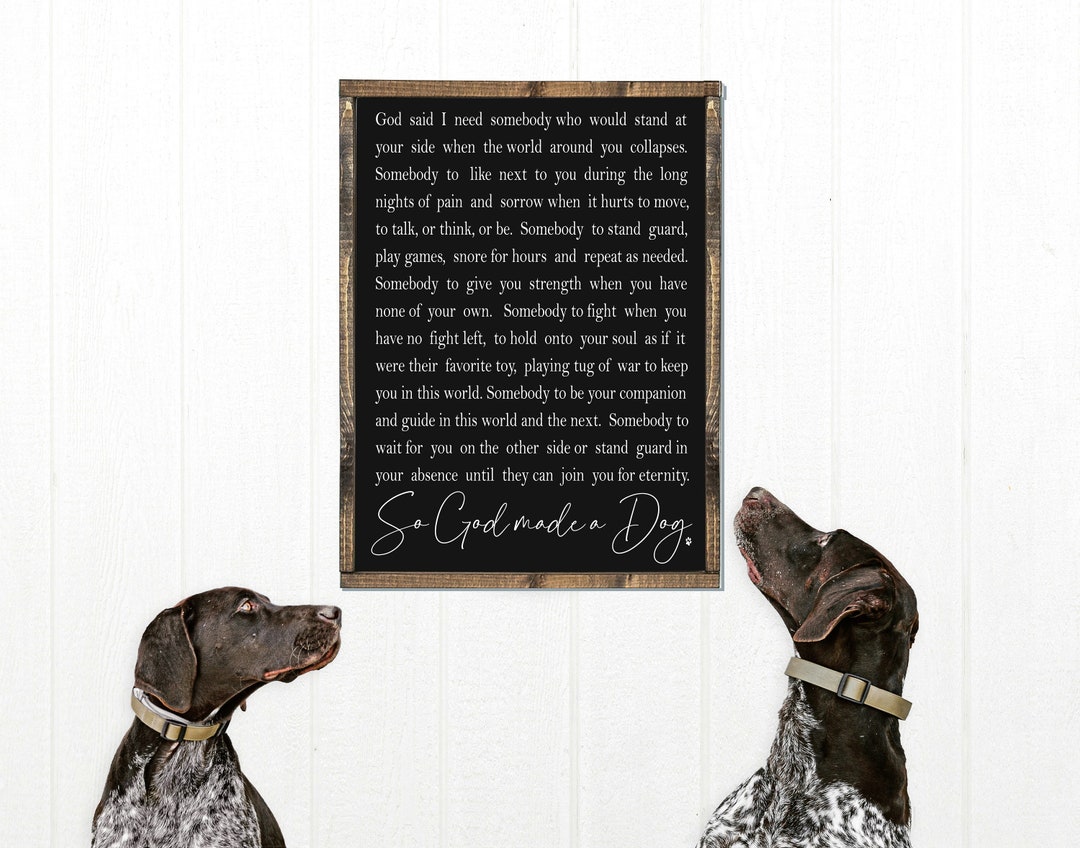 God said I need somebody who would stand at
your side when the world around you collapses.
Somebody to like next to you during the long
nights of pain and sorrow when it hurts to move,
to talk, or think, or be. Somebody to stand guard,
play games, snore for hours and repeat as needed.
Somebody to give you strength when you have
none of your own. Somebody to fight when you
have no fight left, to hold onto your soul as if it
were their favorite toy, playing tug of war to keep
you in this world. Somebody to be your companion
and guide in this world and the next. Somebody to
wait for you on the other side or stand guard in
your absence until they can join you for eternity.
So God made a Dog.